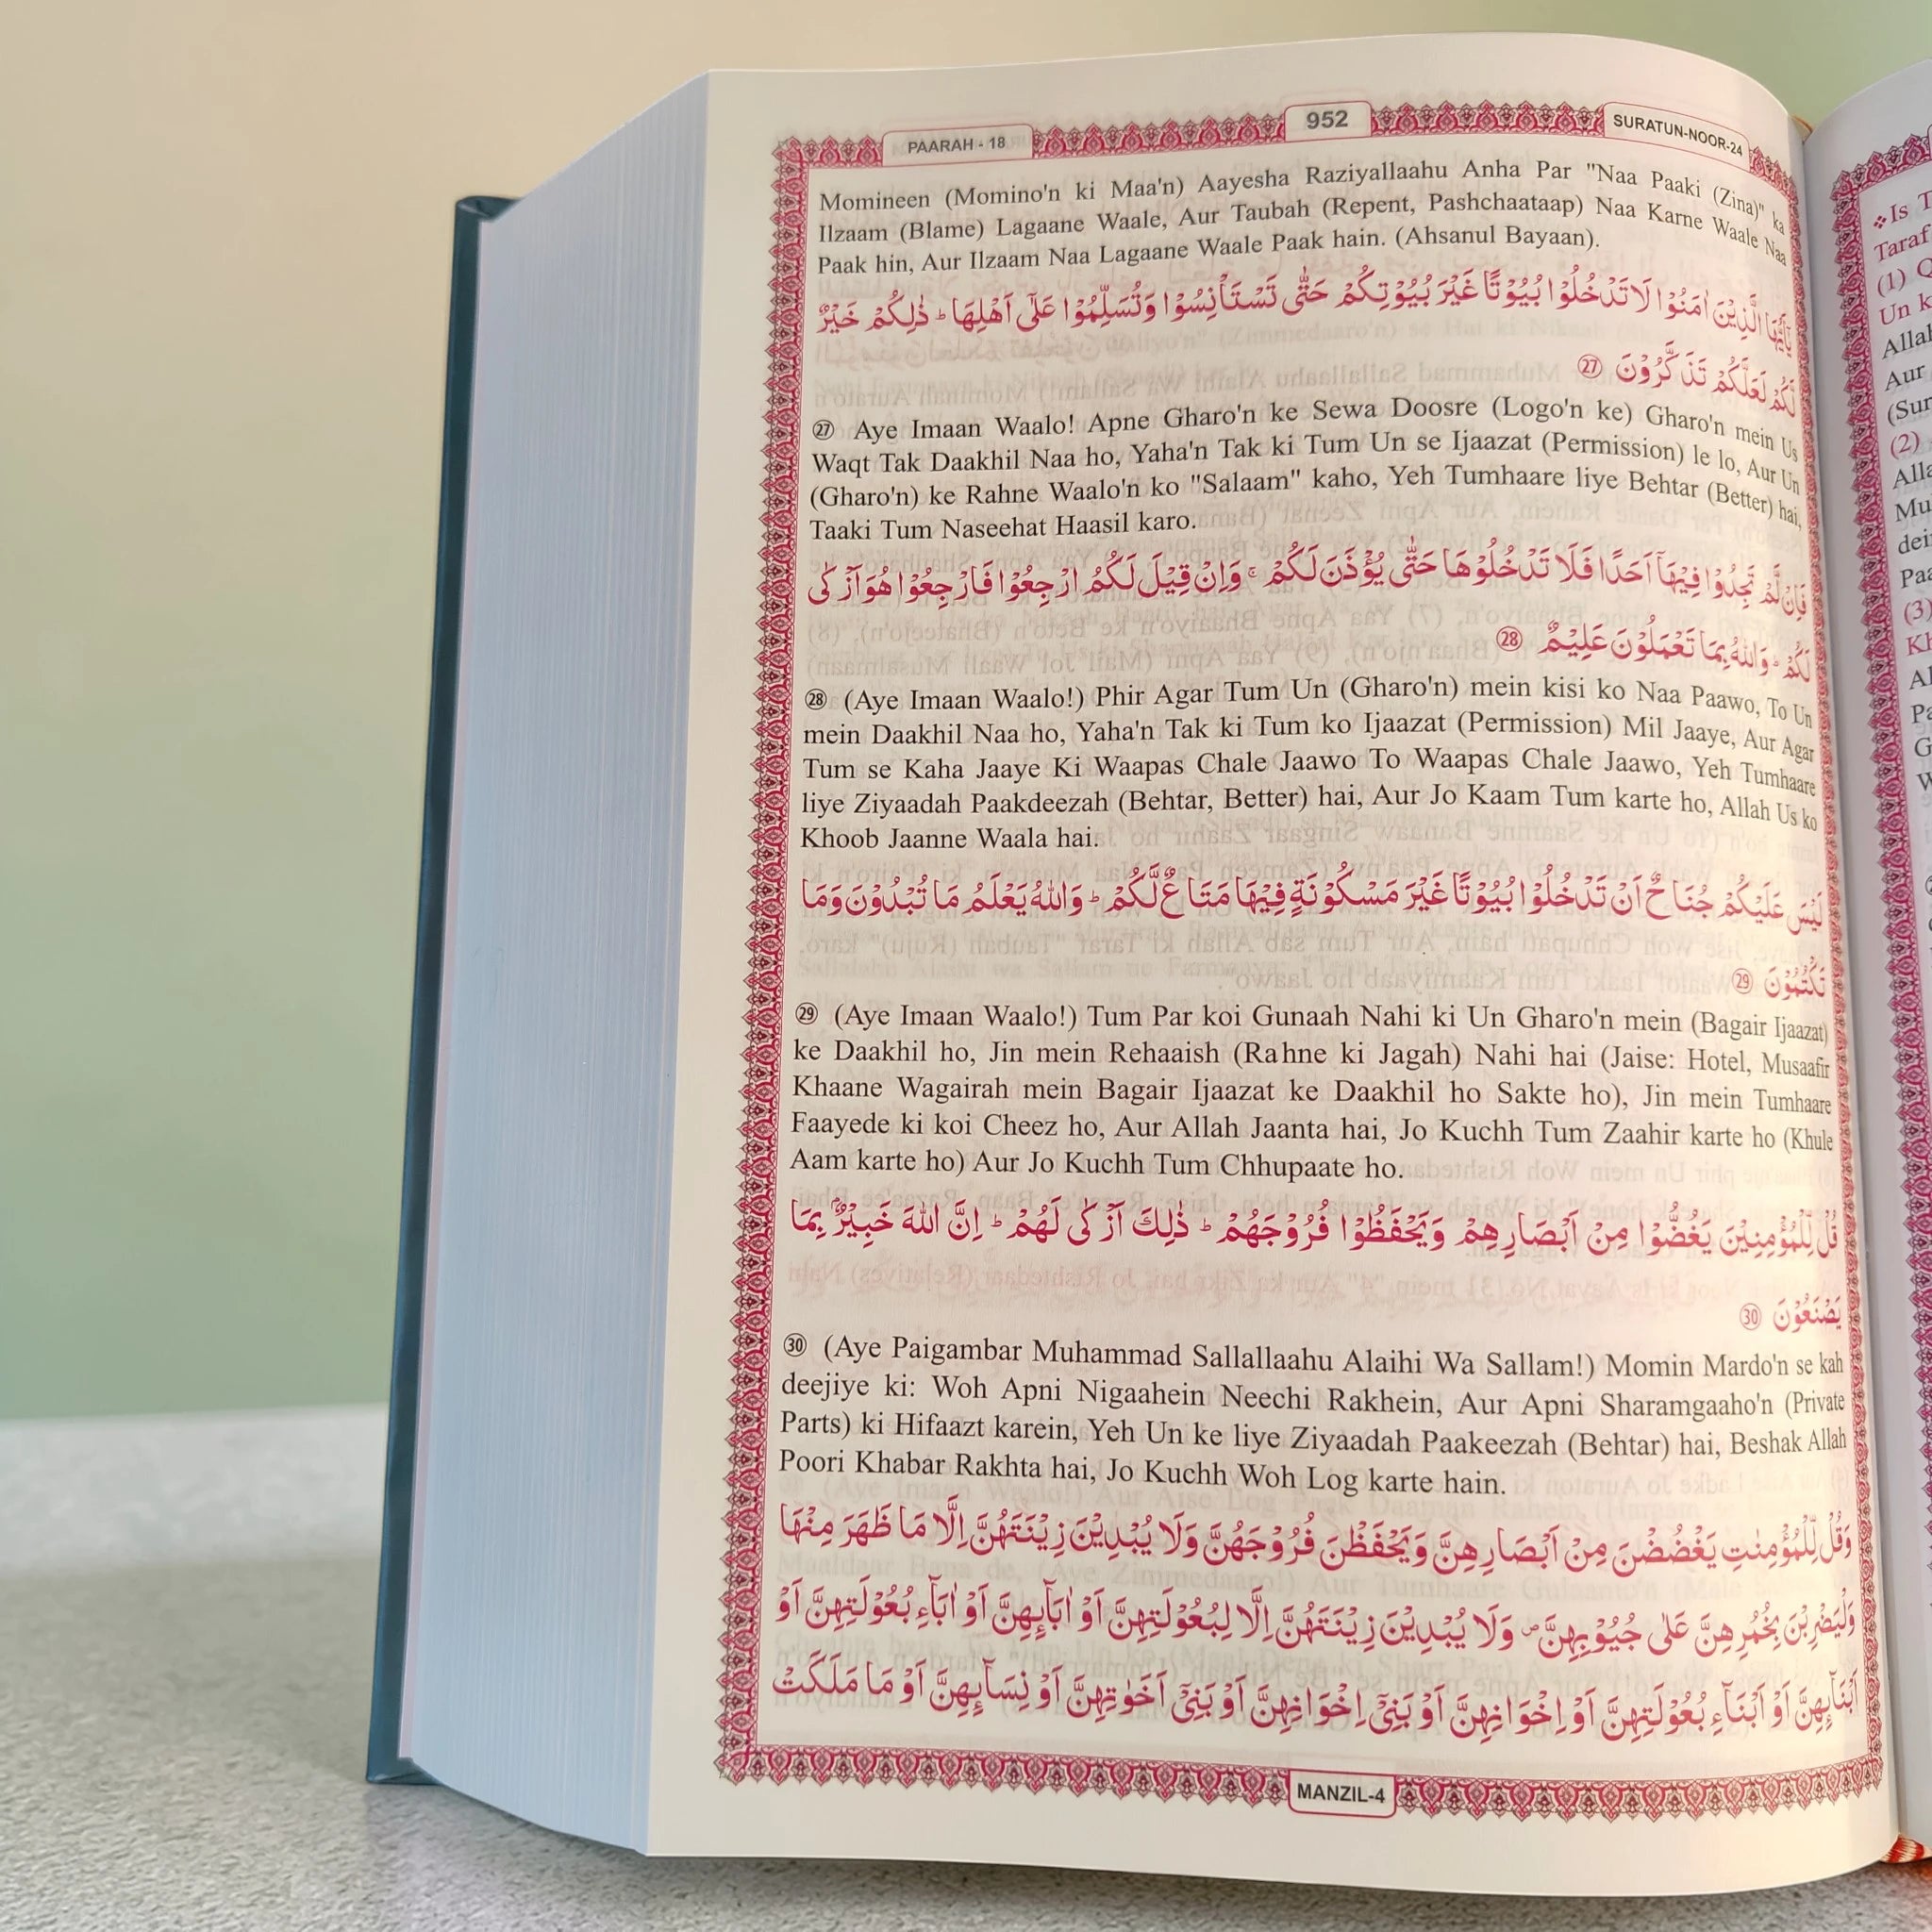 PAARAH - 18
952
SURATUN-NOOR-24
Momineen (Momino'n ki Maa'n) Aayesha Raziyallaahu Anha Par "Naa Paaki (Zina)" ka
Ilzaam (Blame) Lagaane Waale, Aur Taubah (Repent, Pashchaataap) Naa Karne Waale Naa
Paak hin, Aur Ilzaam Naa Lagaane Waale Paak hain. (Ahsanul Bayaan).
يٰٓاَيُّهَا الَّذِيْنَ اٰمَنُوْا لَا تَدْخُلُوْا بُيُوْتًا غَيْرَ بُيُوْتِكُمْ حَتّٰى تَسْتَاْنِسُوْا وَتُسَلِّمُوْا عَلٰٓى اَهْلِهَا ؕ ذٰلِكُمْ خَيْرٌ
لَّكُمْ لَعَلَّكُمْ تَذَكَّرُوْنَ ㉗
㉗ Aye Imaan Waalo! Apne Gharo'n ke Sewa Doosre (Logo'n ke) Gharo'n mein Us
Waqt Tak Daakhil Naa ho, Yaha'n Tak ki Tum Un se Ijaazat (Permission) le lo, Aur Un
(Gharo'n) ke Rahne Waalo'n ko "Salaam" kaho, Yeh Tumhaare liye Behtar (Better) hai,
Taaki Tum Naseehat Haasil karo.
فَاِنْ لَّمْ تَجِدُوْا فِيْهَاۤ اَحَدًا فَلَا تَدْخُلُوْهَا حَتّٰى يُؤْذَنَ لَكُمْ ۚ وَاِنْ قِيْلَ لَكُمُ ارْجِعُوْا فَارْجِعُوْا هُوَ اَزْكٰى
لَكُمْ ؕ وَاللّٰهُ بِمَا تَعْمَلُوْنَ عَلِيْمٌ ㉘
㉘ (Aye Imaan Waalo!) Phir Agar Tum Un (Gharo'n) mein kisi ko Naa Paawo, To Un
mein Daakhil Naa ho, Yaha'n Tak ki Tum ko Ijaazat (Permission) Mil Jaaye, Aur Agar
Tum se Kaha Jaaye Ki Waapas Chale Jaawo To Waapas Chale Jaawo, Yeh Tumhaare
liye Ziyaadah Paakdeezah (Behtar, Better) hai, Aur Jo Kaam Tum karte ho, Allah Us ko
Khoob Jaanne Waala hai.
لَيْسَ عَلَيْكُمْ جُنَاحٌ اَنْ تَدْخُلُوْا بُيُوْتًا غَيْرَ مَسْكُوْنَةٍ فِيْهَا مَتَاعٌ لَّكُمْ ؕ وَاللّٰهُ يَعْلَمُ مَا تُبْدُوْنَ وَمَا
تَكْتُمُوْنَ ㉙
㉙ (Aye Imaan Waalo!) Tum Par koi Gunaah Nahi ki Un Gharo'n mein (Bagair Ijaazat)
ke Daakhil ho, Jin mein Rehaaish (Rahne ki Jagah) Nahi hai (Jaise: Hotel, Musaafir
Khaane Wagairah mein Bagair Ijaazat ke Daakhil ho Sakte ho), Jin mein Tumhaare
Faayede ki koi Cheez ho, Aur Allah Jaanta hai, Jo Kuchh Tum Zaahir karte ho (Khule
Aam karte ho) Aur Jo Kuchh Tum Chhupaate ho.
قُلْ لِّلْمُؤْمِنِيْنَ يَغُضُّوْا مِنْ اَبْصَارِهِمْ وَيَحْفَظُوْا فُرُوْجَهُمْ ؕ ذٰلِكَ اَزْكٰى لَهُمْ ؕ اِنَّ اللّٰهَ خَبِيْرٌۢ بِمَا
يَصْنَعُوْنَ ㉚
㉚ (Aye Paigambar Muhammad Sallallaahu Alaihi Wa Sallam!) Momin Mardo'n se kah
deejiye ki: Woh Apni Nigaahein Neechi Rakhein, Aur Apni Sharamgaaho'n (Private
Parts) ki Hifaazt karein, Yeh Un ke liye Ziyaadah Paakeezah (Behtar) hai, Beshak Allah
Poori Khabar Rakhta hai, Jo Kuchh Woh Log karte hain.
وَقُلْ لِّلْمُؤْمِنٰتِ يَغْضُضْنَ مِنْ اَبْصَارِهِنَّ وَيَحْفَظْنَ فُرُوْجَهُنَّ وَلَا يُبْدِيْنَ زِيْنَتَهُنَّ اِلَّا مَا ظَهَرَ مِنْهَا
وَلْيَضْرِبْنَ بِخُمُرِهِنَّ عَلٰى جُيُوْبِهِنَّ ۖ وَلَا يُبْدِيْنَ زِيْنَتَهُنَّ اِلَّا لِبُعُوْلَتِهِنَّ اَوْ اٰبَآئِهِنَّ اَوْ اٰبَآءِ بُعُوْلَتِهِنَّ اَوْ
اَبْنَآئِهِنَّ اَوْ اَبْنَآءِ بُعُوْلَتِهِنَّ اَوْ اِخْوَانِهِنَّ اَوْ بَنِيْٓ اِخْوَانِهِنَّ اَوْ بَنِيْٓ اَخَوٰتِهِنَّ اَوْ نِسَآئِهِنَّ اَوْ مَا مَلَكَتْ
MANZIL-4
Is
Taraf
(1)
Un
Aur
(2)
(3)